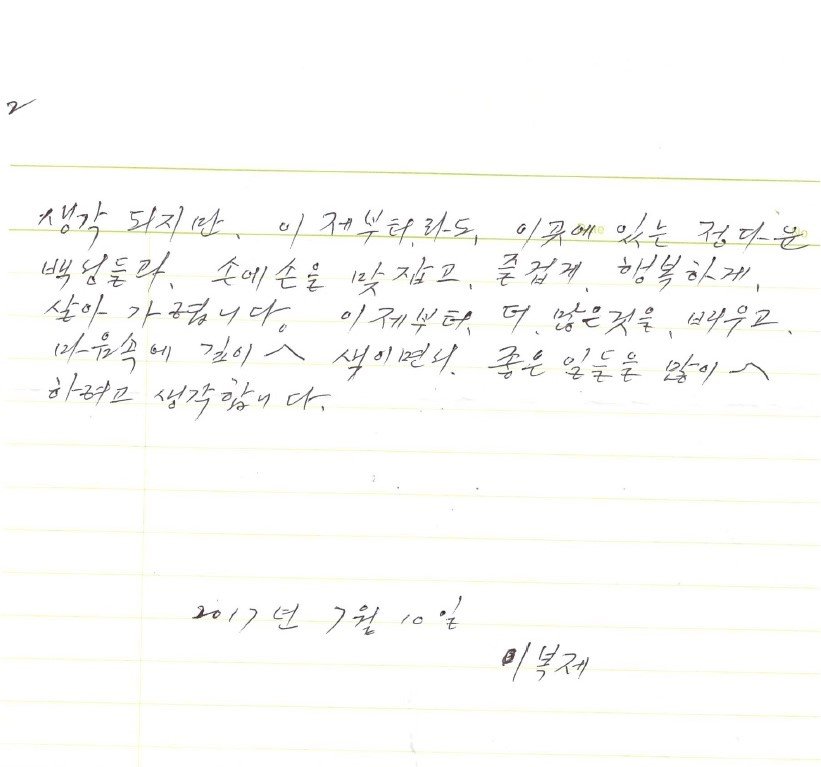 2
생각 되지만, 이제부터라도, 이곳에 있는 정다운
백님들과, 손에손을 맞잡고, 즐겁게, 행복하게,
살아 가렵니다. 이제부터, 더, 많은것을, 배우고,
마음속에 깊이 색이면서, 좋은 일들을 많이
하려고 생각합니다.
2017년 7월 10일
이복제